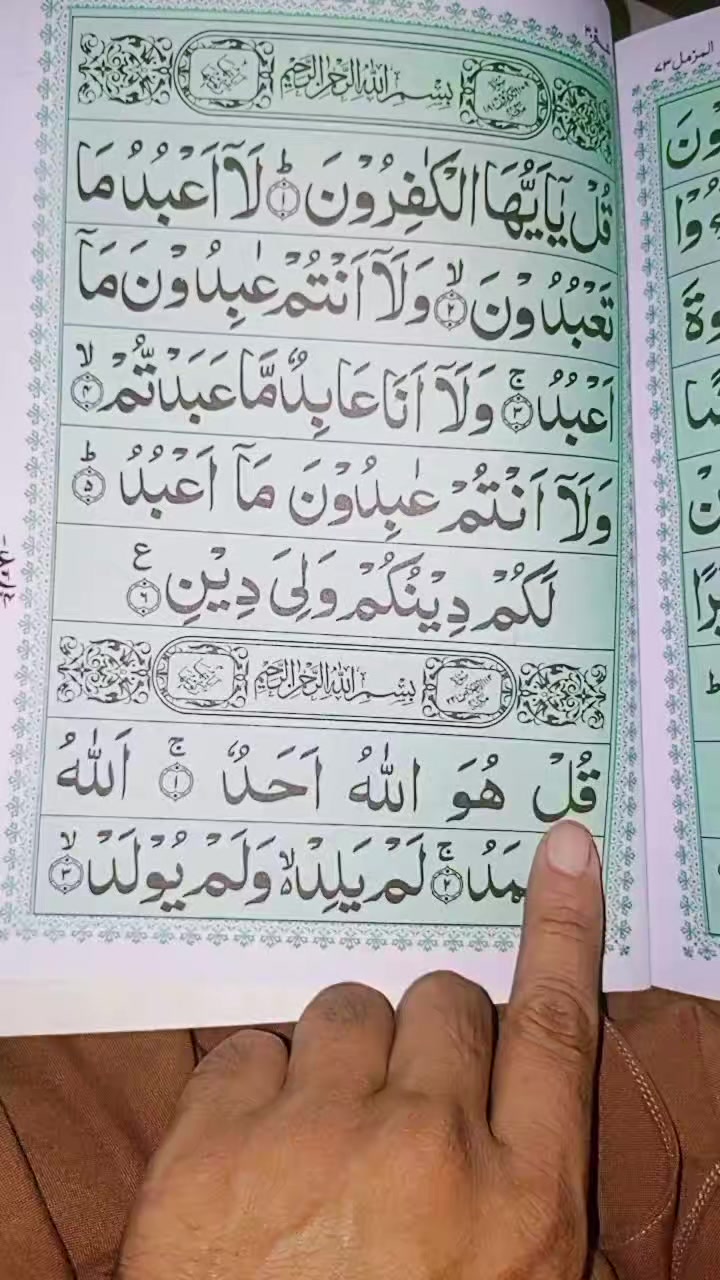 المزمل ٧٣
بِسْمِ اللهِ الرَّحْمٰنِ الرَّحِيْمِ
قُلْ يٰٓاَيُّهَا الْكٰفِرُوْنَ ۙ﴿۱﴾ لَاۤ اَعْبُدُ مَا
تَعْبُدُوْنَ ۙ﴿۲﴾ وَلَاۤ اَنْتُمْ عٰبِدُوْنَ مَاۤ
اَعْبُدُ ۚ﴿۳﴾ وَلَاۤ اَنَا عَابِدٌ مَّا عَبَدْتُّمْ ۙ﴿۴﴾
وَلَاۤ اَنْتُمْ عٰبِدُوْنَ مَاۤ اَعْبُدُ ؕ﴿۵﴾
لَكُمْ دِيْنُكُمْ وَلِىَ دِيْنِ ﴿۶﴾ ع
بِسْمِ اللهِ الرَّحْمٰنِ الرَّحِيْمِ
قُلْ هُوَ اللهُ اَحَدٌ ۚ﴿۱﴾ اَللهُ
مَدُ ۚ﴿۲﴾ لَمْ يَلِدْ ۙ وَلَمْ يُوْلَدْ ۙ﴿۳﴾